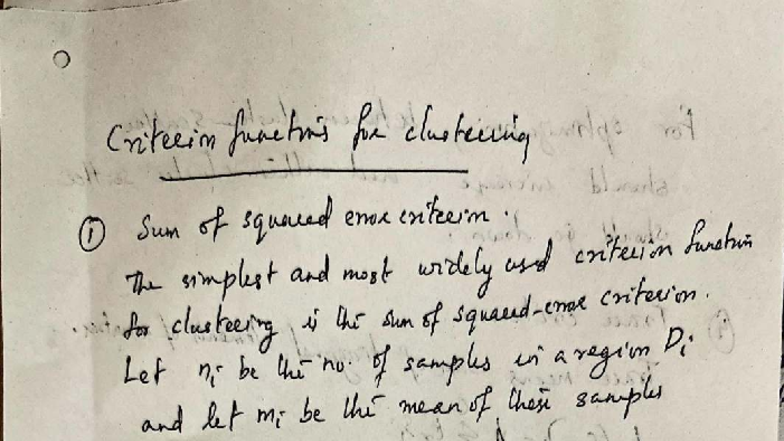 Criterion functions for clustering
① Sum of squared error criterion.
The simplest and most widely used criterion function
for clustering is the sum of squared-error criterion.
Let nᵢ be the no. of samples in a region Dᵢ
and let mᵢ be the mean of these samples